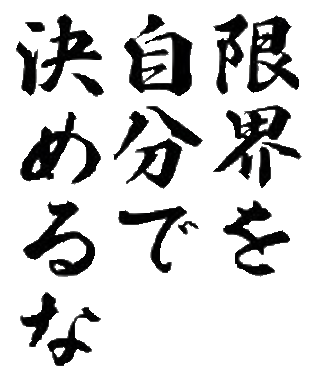 限界を
自分で
決めるな